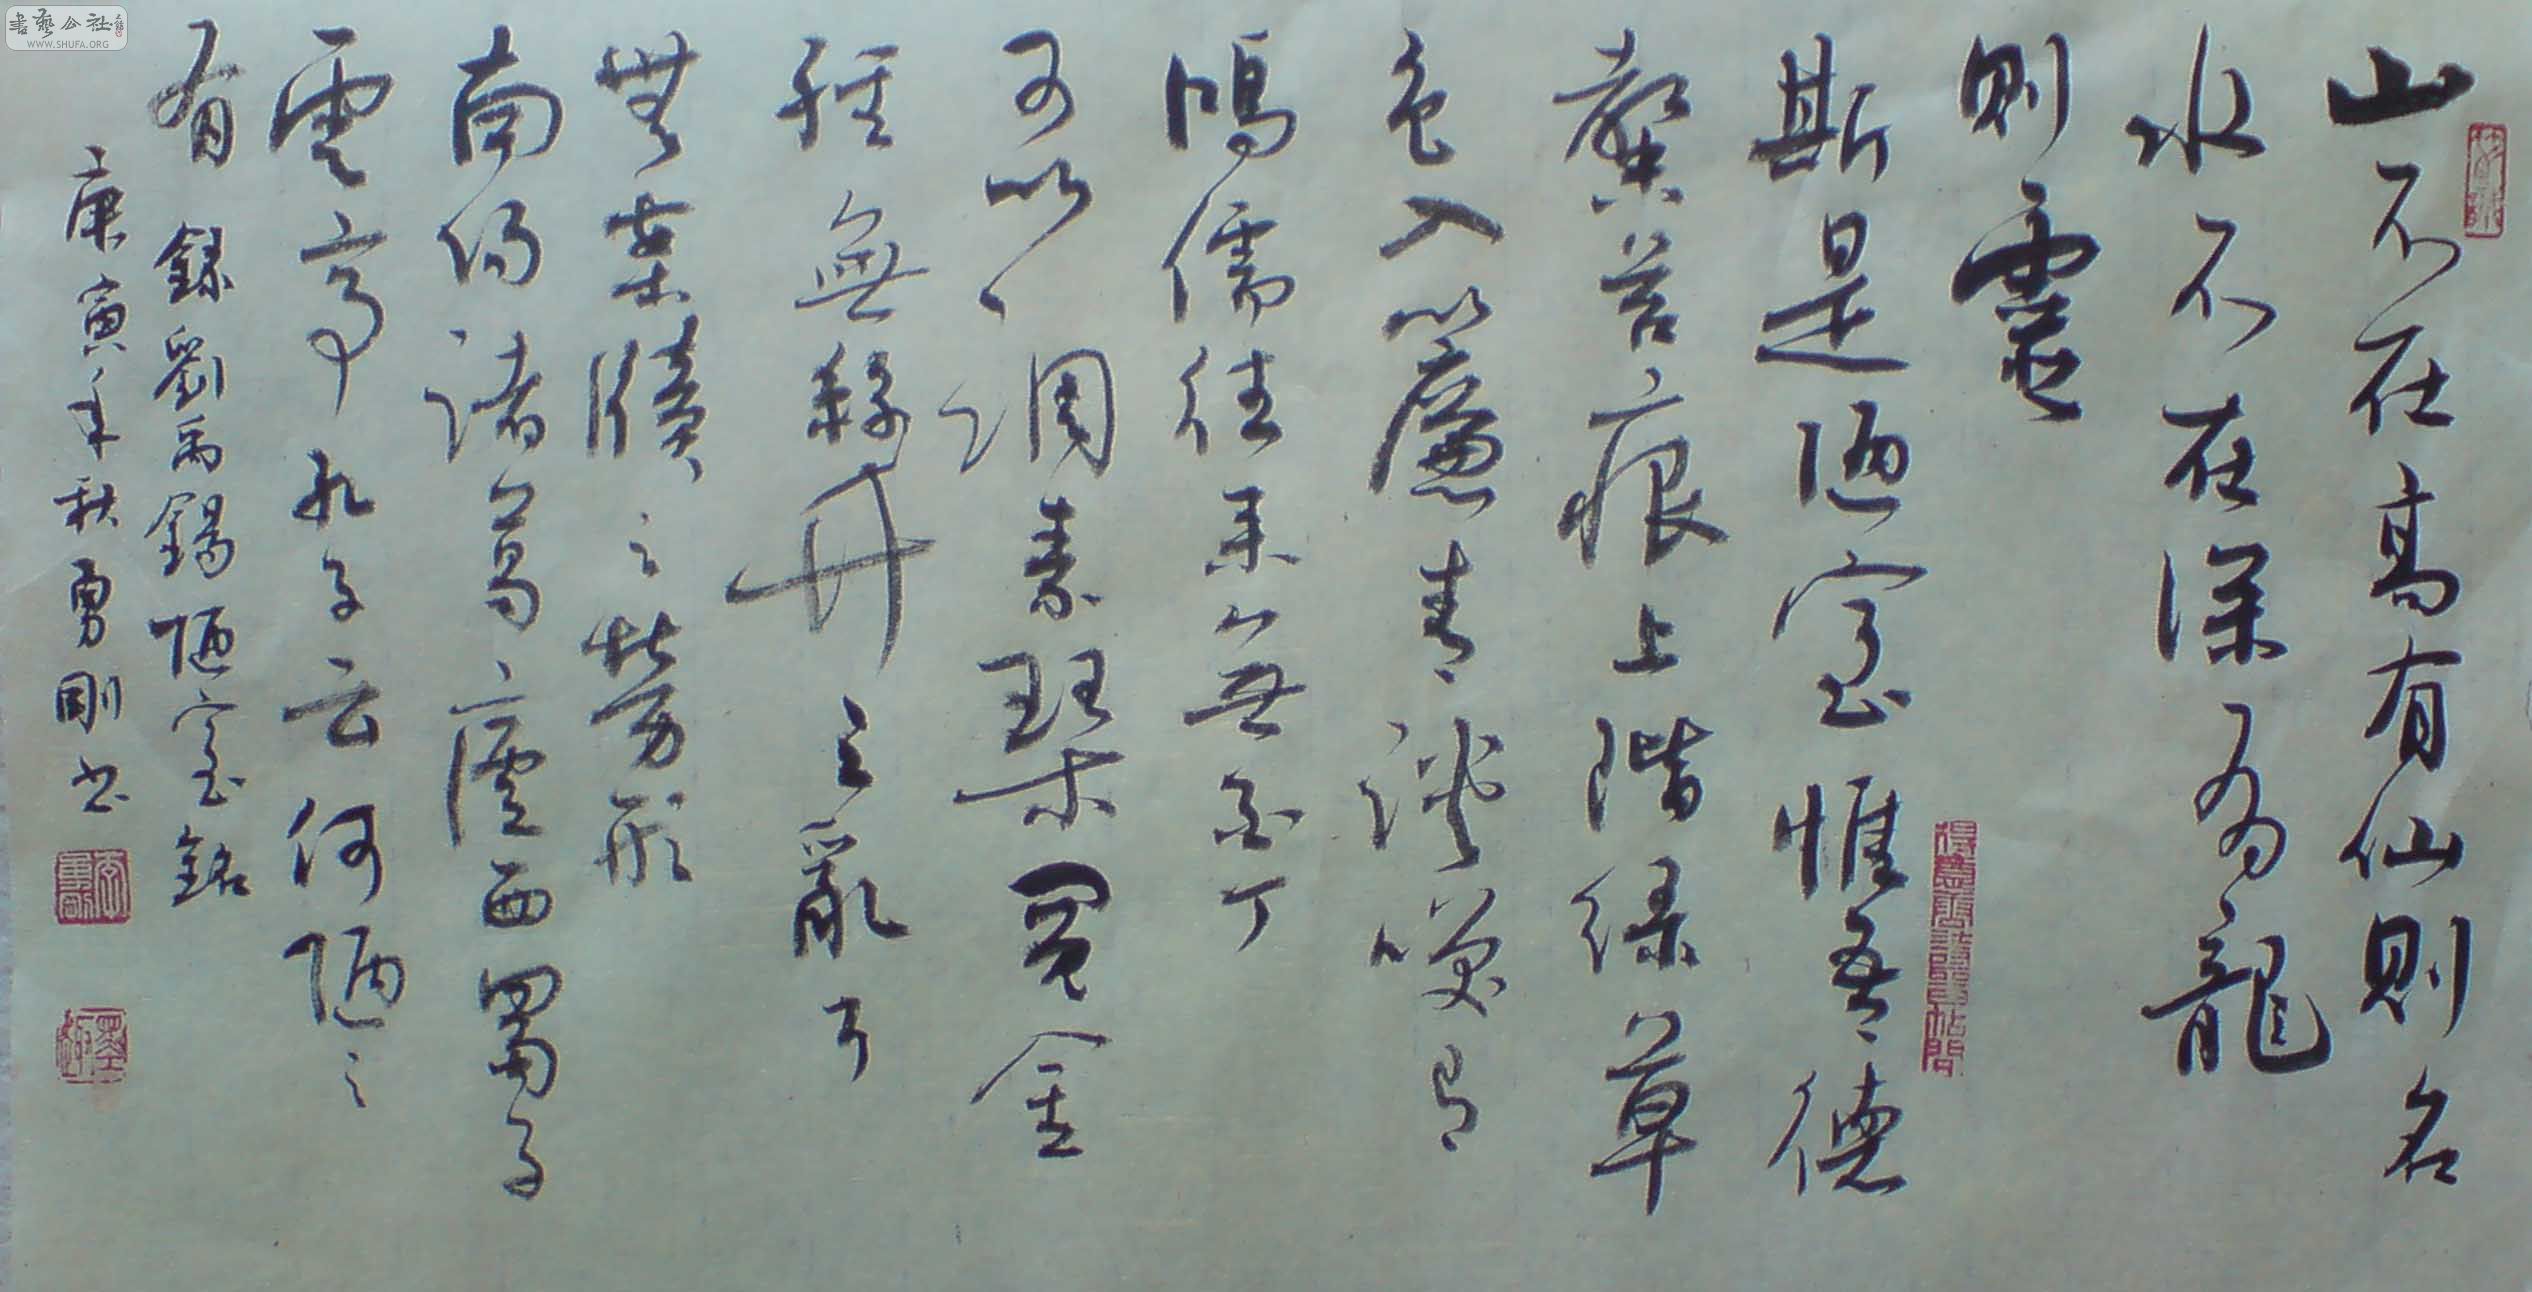 山不在高有仙則名
水不在深有龍
則靈
斯是陋室惟吾德
馨苔痕上階綠草
色入簾青談笑有
鴻儒往來無白丁
可以調素琴閱金
經無絲竹之亂耳
無案牘之勞形
南陽諸葛廬西蜀子
雲亭孔子云何陋之
有 錄劉禹錫陋室銘
庚寅年秋勇剛書
得意唐詩晉帖間
李勇剛
墨趣
書藝公社
WWW.SHUFA.ORG